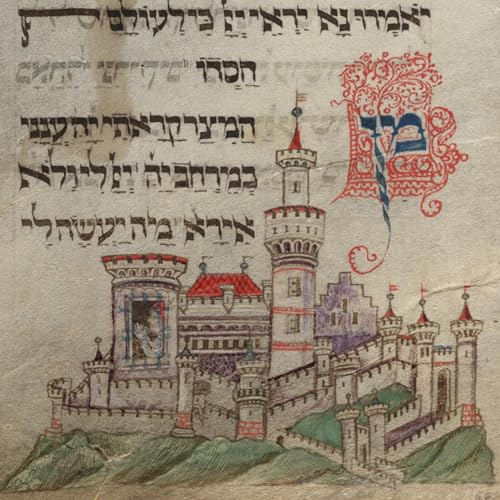 יאמרו נא יראי יי כי לעולם
חסדו
מן
המצר קראתי יה ענני
במרחב יה יי לי לא
אירא מה יעשה לי